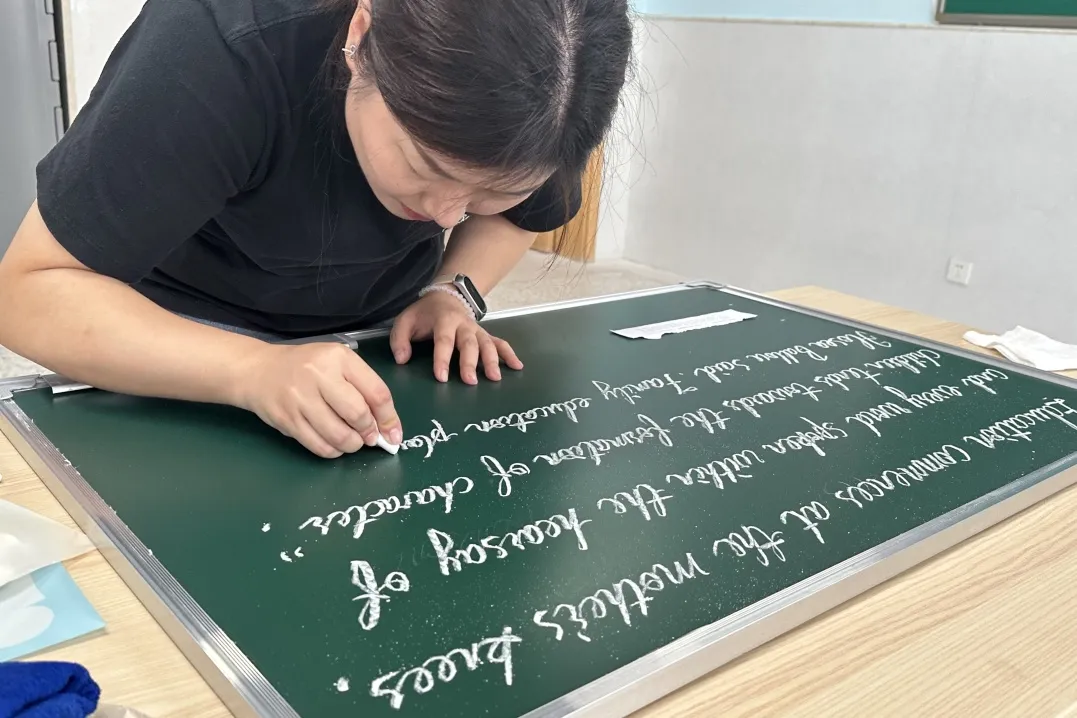 Education commences at the mother's knees.
and every word spoken within the hearsay of
children tends towards the formation of character."
Hosea Ballou said. Family education play